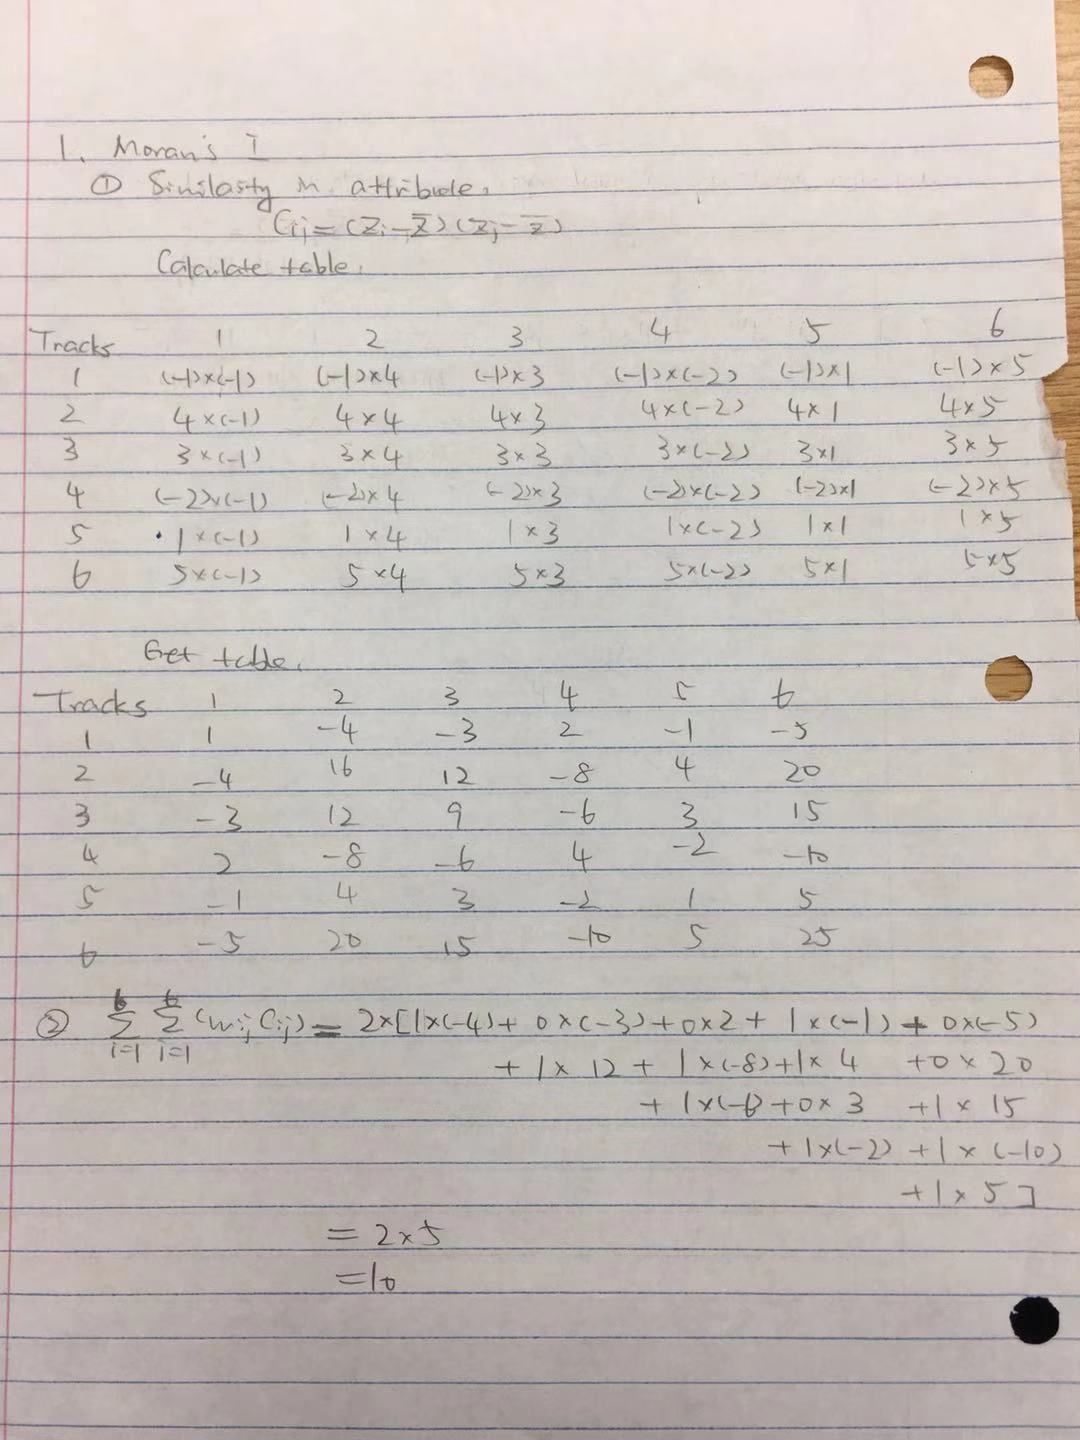 1. Moran's I
① Similarity in attribute.
Cij=(Zi-Z̅)(Zj-Z̅)
Calculate table.
Tracks 1 2 3 4 5 6
1 (-1)×(-1) (-1)×4 (-1)×3 (-1)×(-2) (-1)×1 (-1)×5
2 4×(-1) 4×4 4×3 4×(-2) 4×1 4×5
3 3×(-1) 3×4 3×3 3×(-2) 3×1 3×5
4 (-2)×(-1) (-2)×4 (-2)×3 (-2)×(-2) (-2)×1 (-2)×5
5 1×(-1) 1×4 1×3 1×(-2) 1×1 1×5
6 5×(-1) 5×4 5×3 5×(-2) 5×1 5×5
Get table.
Tracks 1 2 3 4 5 6
1 1 -4 -3 2 -1 -5
2 -4 16 12 -8 4 20
3 -3 12 9 -6 3 15
4 2 -8 -6 4 -2 -10
5 -1 4 3 -2 1 5
6 -5 20 15 -10 5 25
② 6∑i=1 6∑i=1 (wij Cij) = 2×[1×(-4)+0×(-3)+0×2+1×(-1)+0×(-5)
+1×12+1×(-8)+1×4 +0×20
+1×(-6)+0×3 +1×15
+1×(-2)+1×(-10)
+1×5]
=2×5
=10